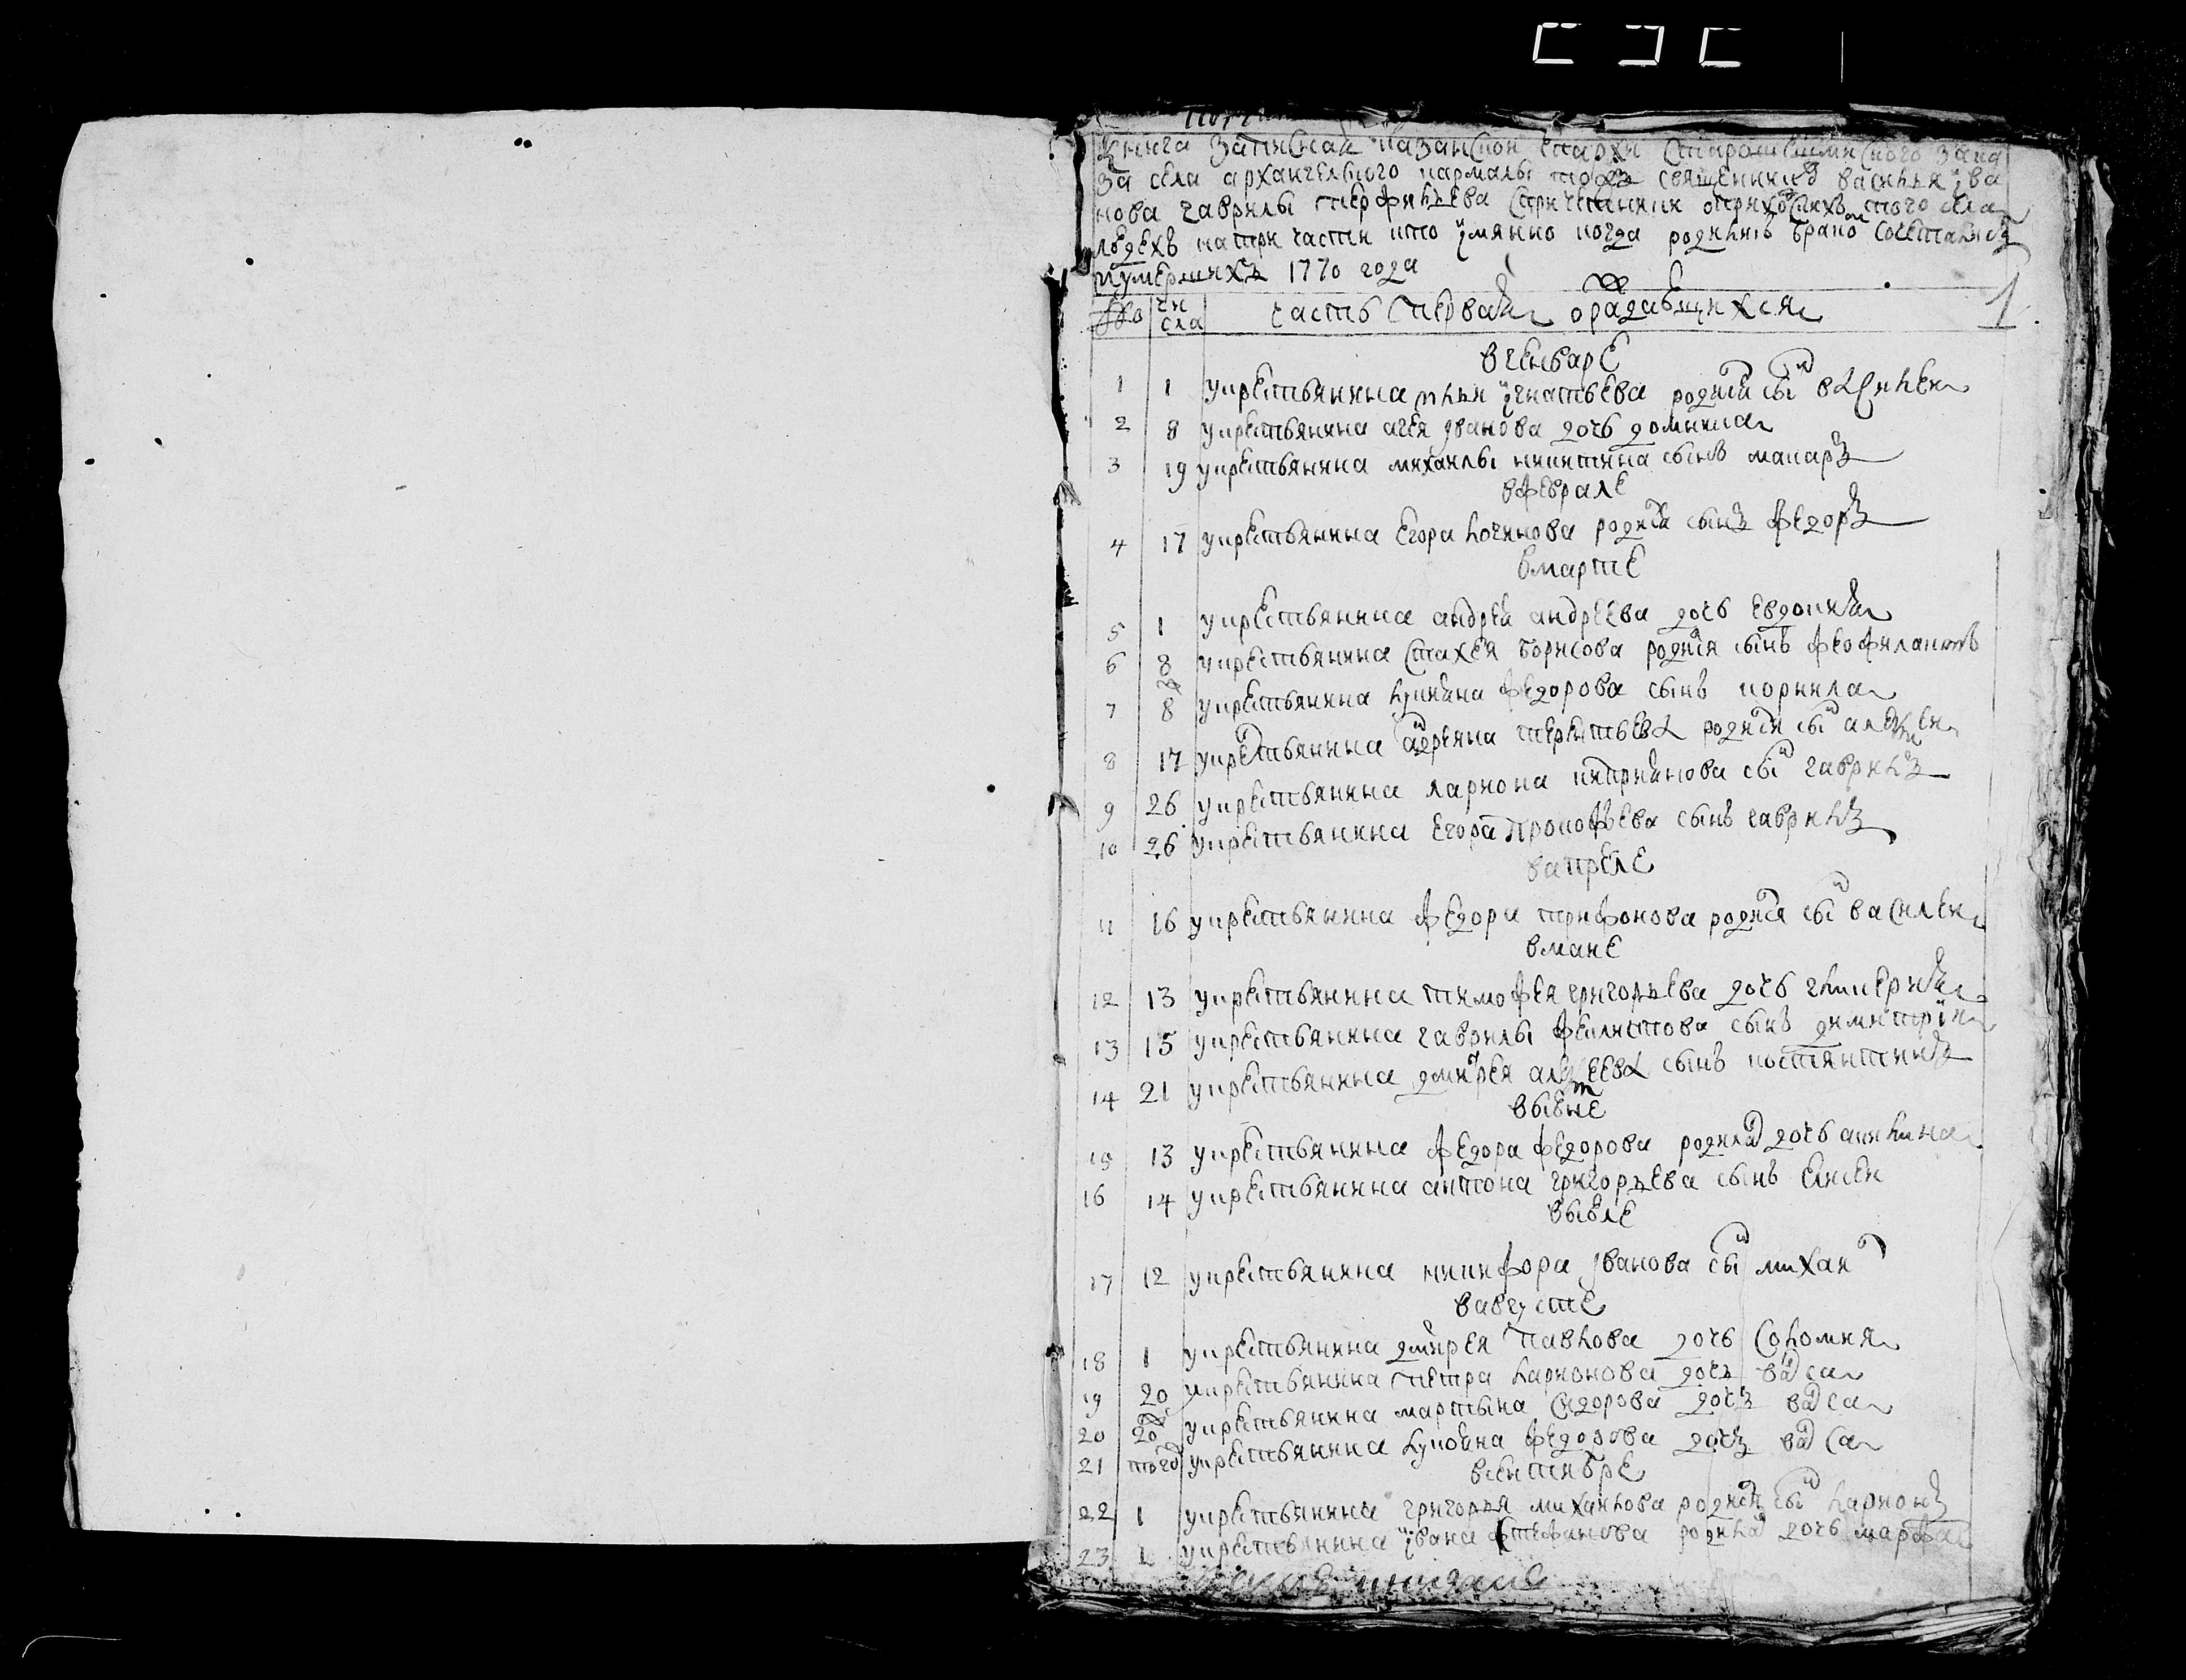 Книга записная казанской епархи старошешминского зака
за села архангельского кармалы тожъ священниковъ василья ива
нова гаврилы перфильева спричетники оприходскихъ того села
людехъ натри части кто имянно когда родился бракомъ сочетался
иумершихъ 1770 года
1
чи
сла
часть первая ораждавшихся
вгенваре
1 1 укрестьянина ильи игнатьева родился сынъ василеи
2 8 укрестьянина агея иванова дочь домника
3 19 укрестьянина михаилы никитина сынъ макаръ
вфеврале
4 17 укрестьянина егора логинова родился сынъ федоръ
вмарте
5 1 укрестьянина андрея андреева дочь евдокия
6 8 укрестьянина стахея борисова родился сынъ феофилактъ
7 8 укрестьянина лукияна федорова сынъ корнила
8 17 укрестьянина адреяна терентьева родился сынъ алексеи
9 26 укрестьянина лариона киприянова сынъ гаврилъ
10 26 укрестьянина егора прокофьева сынъ гаврилъ
вапреле
11 16 укрестьянина федора трифонова родился сынъ василеи
вмаие
12 13 укрестьянина тимофея григорьева дочь гликерия
13 15 укрестьянина гаврилы филиппова сынъ димитрии
14 21 укрестьянина дмитрея алексеева сынъ костянтинъ
выюне
15 13 укрестьянина федора федорова родилась дочь акилина
16 14 укрестьянина антона григорьева сынъ елисеи
выюле
17 12 укрестьянина никифора иванова сынъ михаил
вавгусте
18 1 укрестьянина дмитрея павлова дочь соломия
19 20 укрестьянина петра ларионова дочь васса
20 20 укрестьянина мартына сидорова дочь васса
21 того укрестьянина лукояна федорова дочь васса
всентябре
22 1 укрестьянина григорья михаилова родился сынъ ларионъ
23 1 укрестьянина ивана стефанова родилась дочь марфа